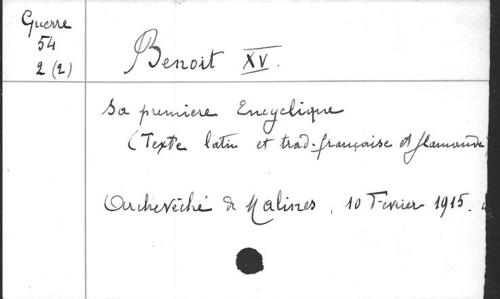 Guerre
54
2 (2)
Benoit XV.
Sa premiere Encyclique
(Texte latin et trad. française et flamande)
Archevêché de Malines, 10 Fevrier 1915.